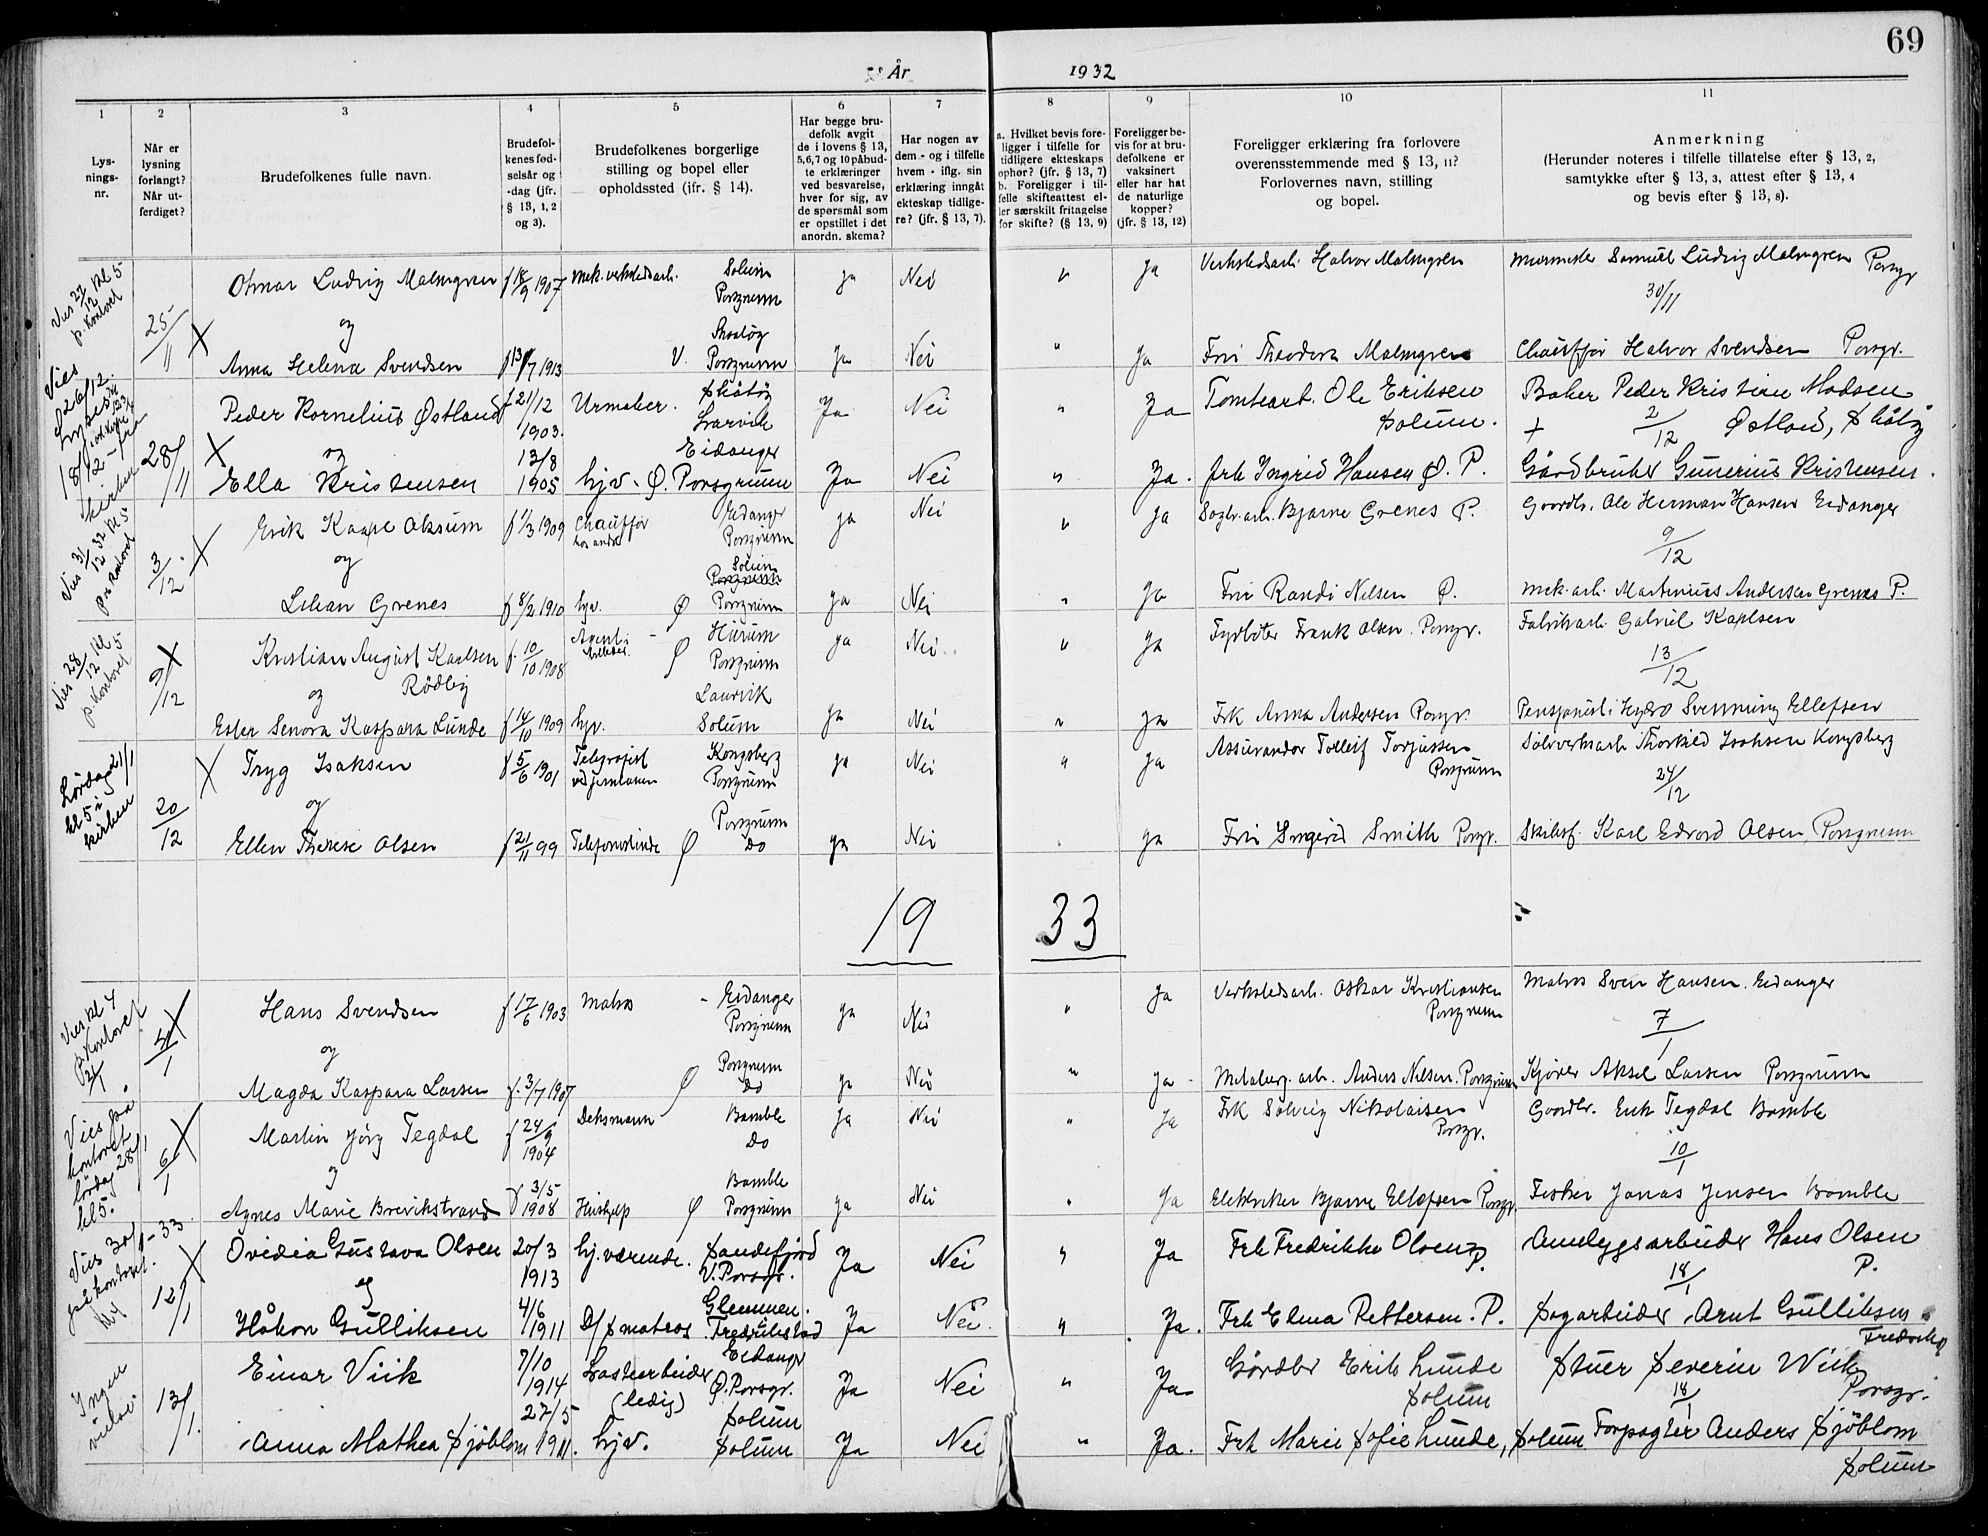 69
År 1932
1 2 3 4 5 6 7 8 9 10 11
Lys-
nings-
nr.
Når er
lysning
forlangt?
Når ut-
ferdiget?
Brudefolkenes fulle navn.
Brudefol-
kenes fød-
selsår og
-dag (jfr.
§ 13, 1, 2
og 3).
Brudefolkenes borgerlige
stilling og bopel eller
opholdssted (jfr. § 14).
Har begge bru-
defolk avgit
de i lovens § 13,
5,6,7 og 10 påbud-
te erklæringer
ved besvarelse,
hver for sig, av
de spørsmål som
er opstillet i det
anordn. skema?
Har nogen av
dem - og i tilfelle
hvem - iflg. sin
erklæring inngått
ekteskap tidlige-
re? (jfr. § 13, 7).
a. Hvilket bevis fore-
ligger i tilfelle for
tidligere ekteskaps
ophør? (jfr. § 13, 7)
b. Foreligger i til-
felle skifteattest el-
ler særskilt fritagelse
for skifte? (§ 13, 9)
Foreligger be-
vis for at bru-
defolkene er
vaksinert
eller har hat
de naturlige
kopper?
(jfr. § 13, 12)
Foreligger erklæring fra forlovere
overensstemmende med § 13, 11?
Forlovernes navn, stilling
og bopel.
Anmerkning
(Herunder noteres i tilfelle tillatelse efter § 13, 2,
samtykke efter § 13, 3, attest efter § 13, 4
og bevis efter § 13, 8).
Vies 27/12 kl 5 p. kontoret
25/11 X Otmar Ludvig Malmgren f 18/9 1907 mek. verkstedsarb. Solum Porsgrunn ja Nei " ja Verkstedsarb. Halvor Malmgren murmester Samuel Ludvig Malmgren Porsgr
30/11
og
Anna Helene Svendsen f 13/7 1913 V. Skåtøy Porsgrunn ja Nei " ja Frú Theodora Malmgren Chauffør Halvor Svendsen Porsgr.
Vies 26/12.
28/11 X Peder Kornelius Østland f 21/12 1903. Urmaker. Skåtøy Larvik Ja Nei " Ja Tomtearb. Ole Eriksen Solum. Baker Peder Kristian Madsen
+ 2/12 Østland, Skåtøy
og
Ella Kristensen 13/8 1905 hjv. Eidanger Ø. Porsgrunn Ja Nei " Ja. frk Ingrid Hansen Ø. P. Gårdbruker Gunerius Kristensen.
Vies 31/12 32 kl 5 på kontoret
3/12. X Erik Kaare Aksum f 1/3 1909 Chauffør hos andre Eidanger Porsgrunn ja Nei " ja Bjarne Grenes P. Gaardb. Ole Herman Hansen Eidanger
9/12
og
Lilian Grenes f 8/2 1910 hjv. Ø Solum Porsgrunn ja Nei " ja Frú Randi Nilsen Ø. mek. arb. Martinius Andersen Grenes P.
Vies 28/12 kl 5 p. kontoret
9/12 X Kristian August Karlsen Rødby f. 10/10 1908 Ø Hurum Porsgrunn ja Nei " ja Fyrbøter Frank Olsen. Porsgr. Fabrikarb. Gabriel Karlsen
13/12
og
Ester Senora Kaspara Lunde f 14/10 1909 hjv. Laurvik Solum ja Nei " ja Frk Anna Andersen Porsgr. Pensjonist i Hydro Svenning Ellefsen
Lørdag 21/1 kl 5 i kirken
20/12 X Tryg Isaksen f 5/6 1901 Telegrafist ved jernbanen Kongsberg Porsgrunn ja Nei " ja Assurandør Tolleif Torjussen Porsgrunn Sølvverksarb. Thorkild Isaksen Kongsberg
24/12
og
Ellen Therese Olsen f 21/11 99 Telefonistinde Ø Porsgrunn do ja Nei ja Frú Ingerid Smith Porsgr. Karl Edvard Olsen, Porsgrunn
19 33
Vies kl 4 p. kontoret 21/1
4/1 X Hans Svendsen f 17/6 1903 Matros - Eidanger Porsgrunn ja Nei " ja Verkstedsarb. Oskar Kristiansen Porsgrunn Matros Sven Hansen. Eidanger
7/1
og
Magda Kaspara Larsen f. 3/7 1907 Ø Porsgrunn do ja Nei " ja. Metalurg. arb. Anders Nilsen. Porsgrunn Kjører Aksel Larsen Porsgrunn
Vies på kontoret lørdag 28/1 kl 5.
6/1 X Martin Jørg Tegdal f 24/9 1904 Deksmann Bamble do ja Nei " ja Frk Solveig Nikolaisen Porsgr. Gaardbr. Erik Tegdal Bamble
10/1
og
Agnes Marie Brevikstrand f 3/5 1908 Hushjelp Ø Bamble Porsgrunn ja Nei " ja Elektriker Bjarne Ellefsen Porsgr. Fisker Jonas Jensen Bamble
Vies 30/1 - 33 på kontoret. kl 4
12/1 X Ovidia Gustava Olsen 20/3 1913 hj. værende. Sandefjord V. Porsgr. Ja Nei " Ja Frk Fredrikke Olsen P. Anleggsarbeider Hans Olsen P.
18/1
og
Håkon Gulliksen 4/6 1911 D/S matros Glemmen. Fredrikstad Ja Nei. " Ja. Frk Elma Pettersen. P. Sagarbeider Arnt Gulliksen Fredrikst
Ingen vielse.
13/1. Einar Viik 7/10 1914 Lastearbeider (ledig) Eidanger Ø. Porsgr. Ja Nei " Ja Gårdbr Erik Lunde Solum Stuer Severin Wiik Porsgr.
18/1
Anna Mathea Sjöblom 27/5 1911. hjv. Solum Solum Ja Nei " Ja. Frk Marie Sofie Lunde, Solum Forpagter Anders Sjöblom Solum